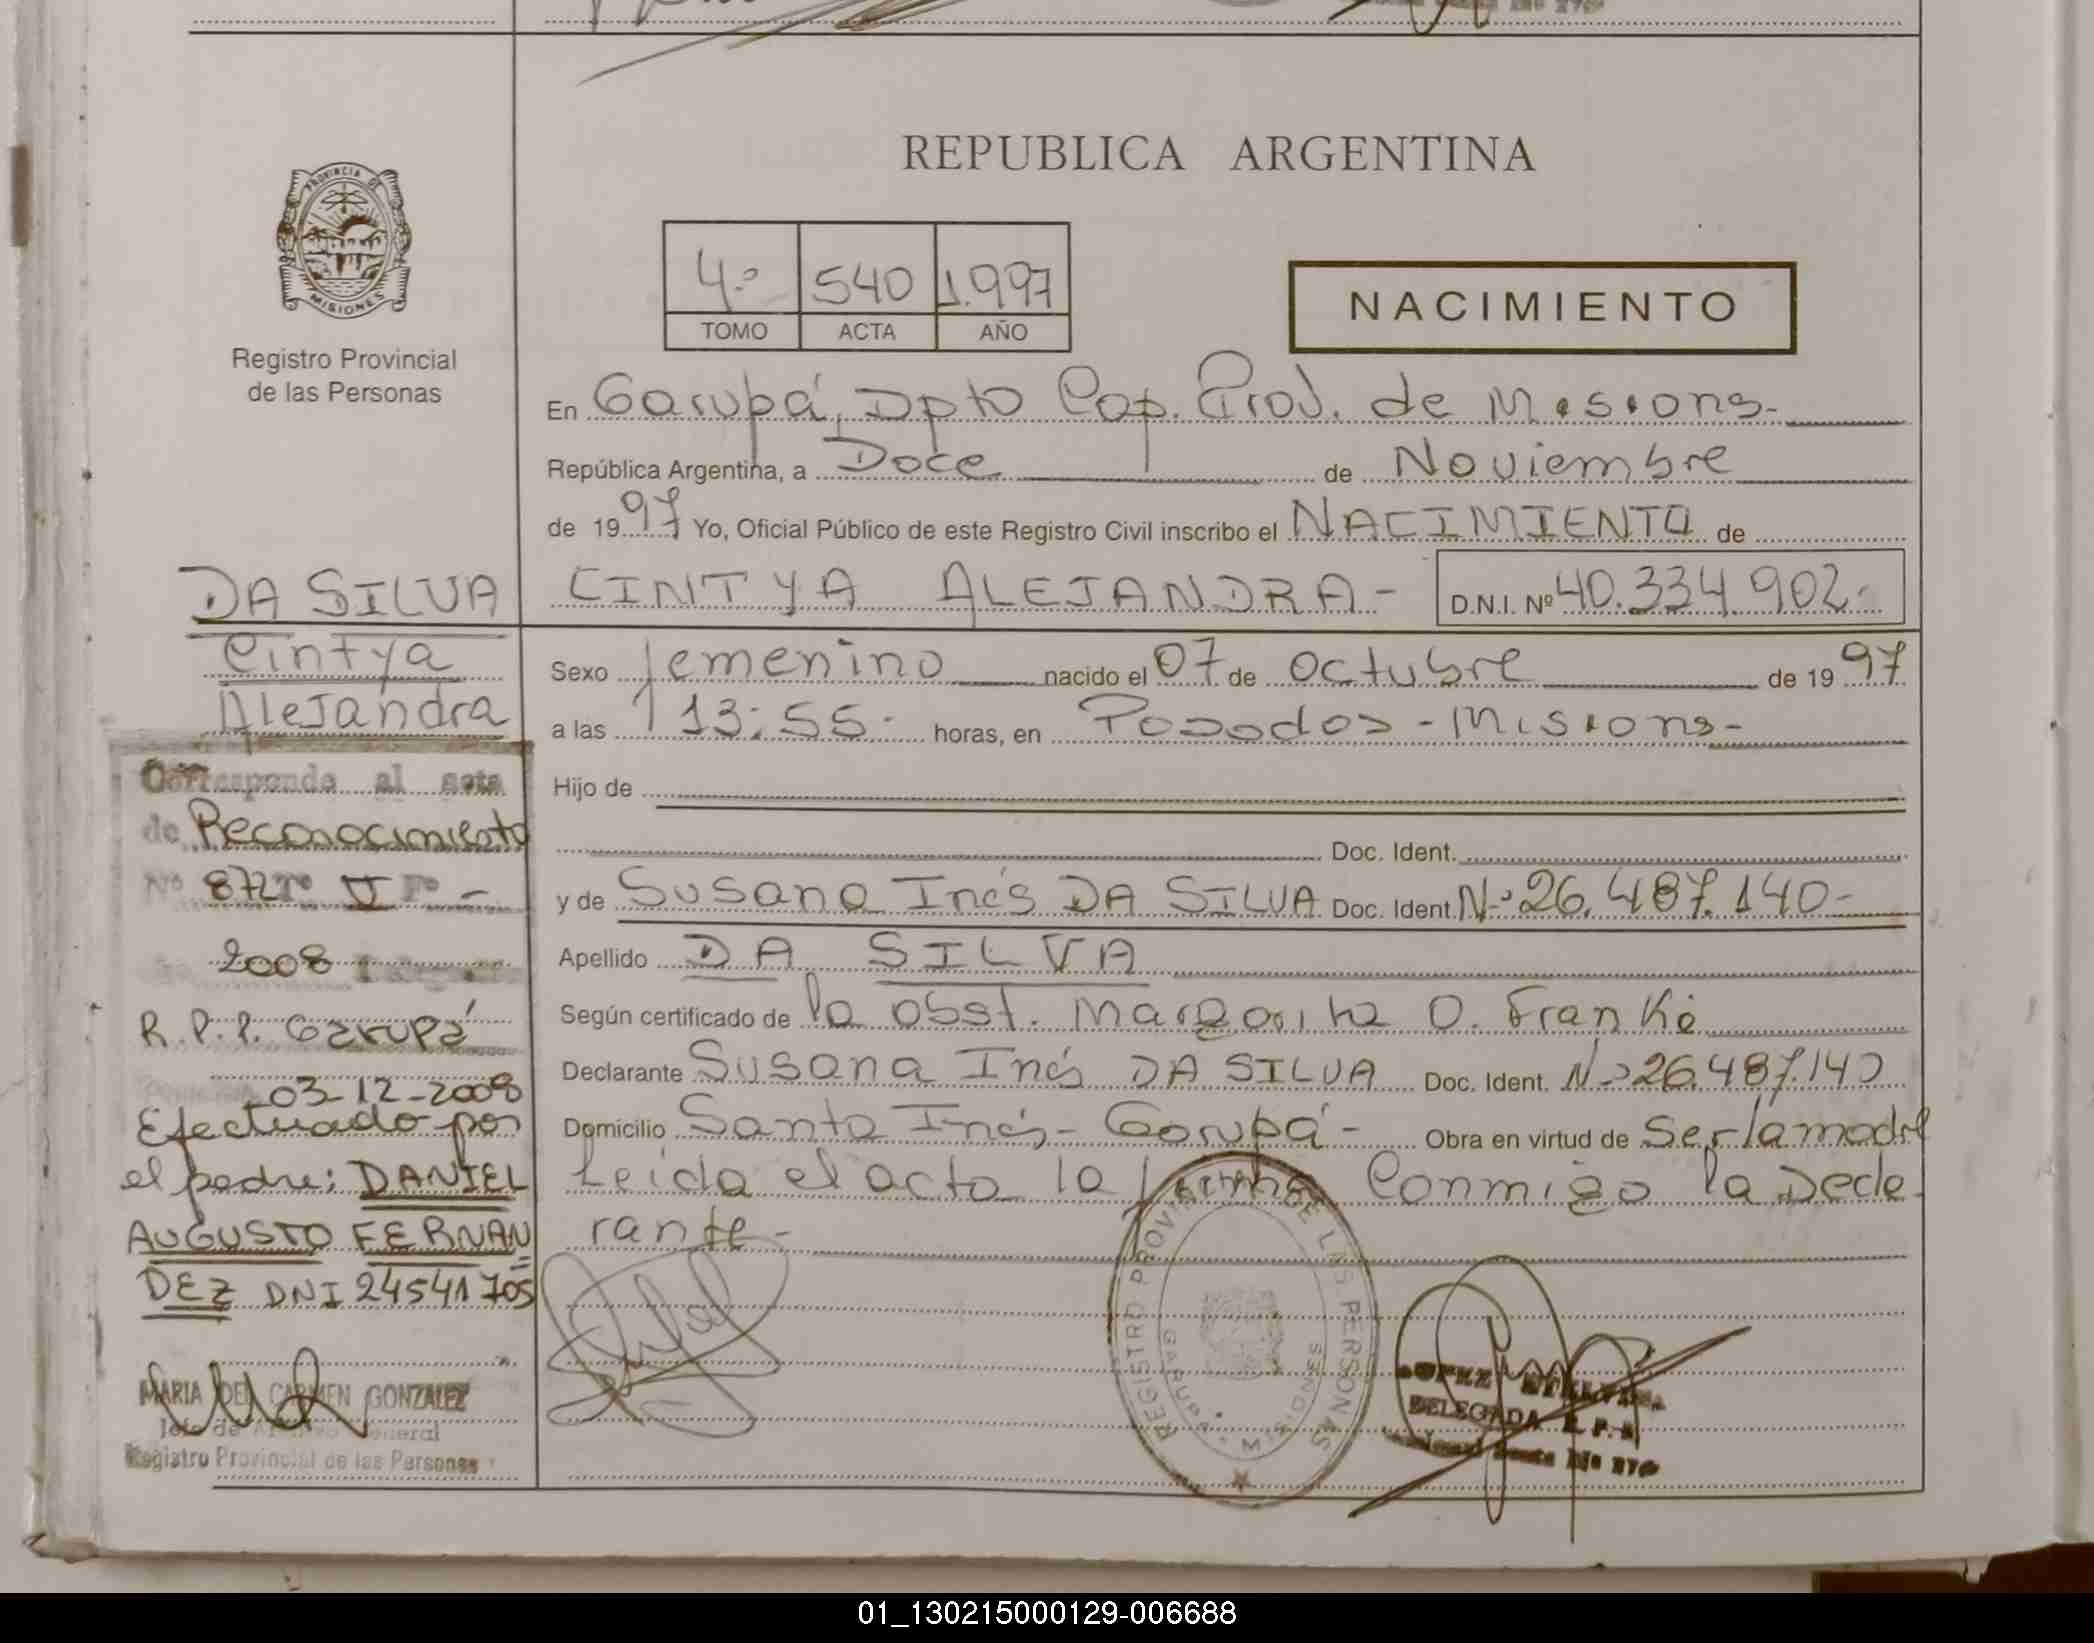 REPUBLICA ARGENTINA
PROVINCIA DE
MISIONES
Registro Provincial
de las Personas
4º 540 1.997
TOMO ACTA AÑO
NACIMIENTO
En Garupá, Dpto Cap. Prov. de Misions-
República Argentina, a Doce de Noviembre
de 1997 Yo, Oficial Público de este Registro Civil inscribo el NACIMIENTO de
CINTYA ALEJANDRA- D.N.I. Nº 40.334.902-
Sexo femenino nacido el 07 de octubre de 1997
a las 13:55 horas, en Posadas - Misions-
Hijo de
Doc. Ident.
y de Susana Inés DA SILVA Doc. Ident. Nº 26.487.140-
Apellido DA SILVA
Según certificado de la obst. Margarita O. Franke
Declarante Susana Inés DA SILVA Doc. Ident. Nº 26.487.140
Domicilio Santa Inés - Garupá - Obra en virtud de Ser la madre
Leida el acta la Conmigo la Decla
rante-
REGISTRO PROVINCIAL DE LAS PERSONAS
GARUPA - MISIONES
LOPEZ
DELEGADA R. P. P.
DA SILVA
Cintya
Alejandra
Corresponde al acta
de Reconocimiento
Nº 872 Tº V Fº -
2008
R.P.P. Garupá
03-12-2008
Efectuado por
el padre: DANIEL
AUGUSTO FERNAN
DEZ DNI 24541705
MARIA DEL CARMEN GONZALEZ
Jefe de Archivo General
Registro Provincial de las Personas
01_130215000129-006688